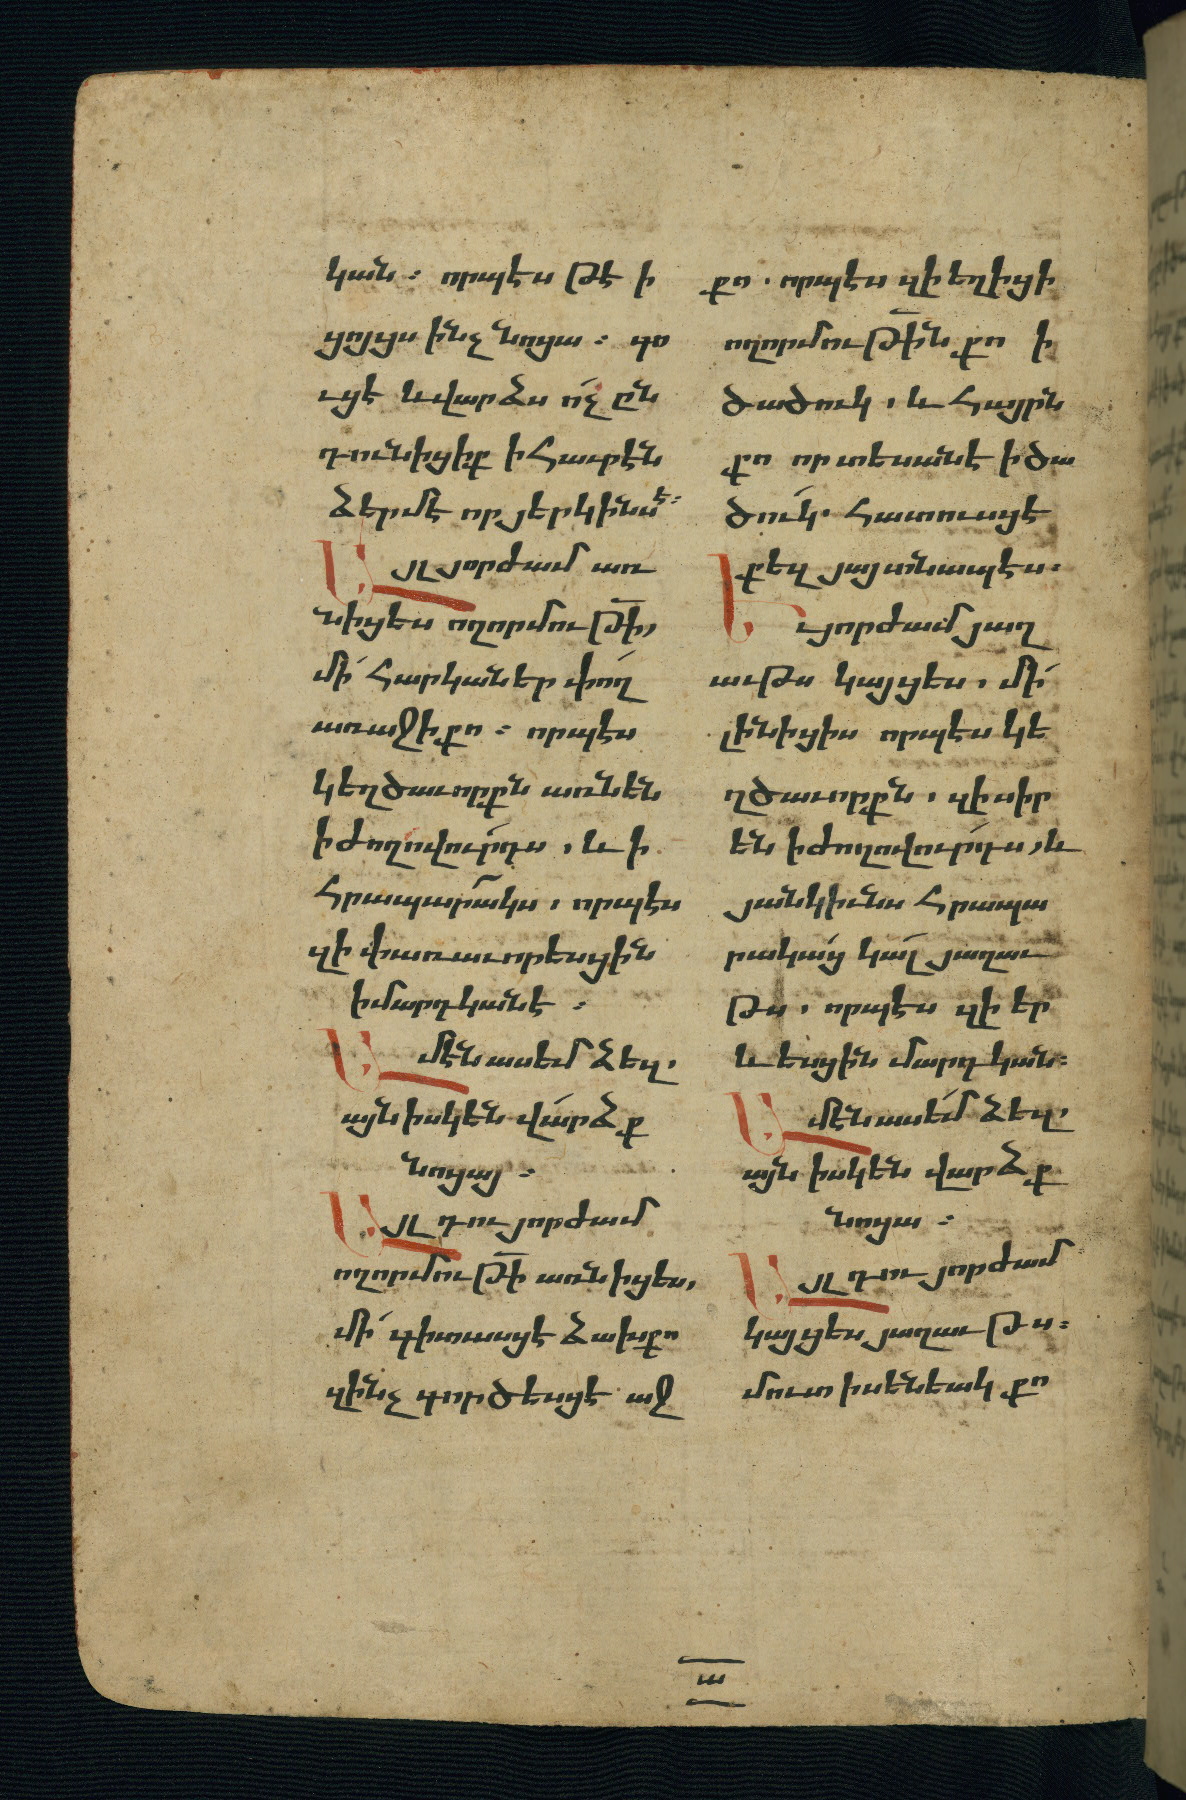 կան։ որպէս թէ ի
ցոյցս ինչ նոցա։ գօ
ւցէ եւ վարձս ո՛չ ըն
դունիցիք ի հաւրէն
ձերմէ որ յերկինս է։
Այլ յորժամ առ
նիցես ողորմութի,
մի՛ հարկաներ փո՛ղ
առաջի քո։ որպէս
կեղծաւորքն առնեն
ի ժողովուրդս, եւ ի
հրապարակս, որպէս
զի փառաւորեսցին
ի մարդկանէ։
Ամէն ասեմ ձեզ.
այն իսկ են վարձք
նոցայ։
Այլ դու յորժամ
ողորմութի առնիցես,
մի՛ գիտասցէ ձախ քո
զինչ գործեսցէ աջ
քո. որպէս զի եղիցի
ողորմութին քո ի
ծածուկ, եւ հայրն
քո որ տեսանէ ի ծա
ծուկ. հատուսցէ
քեզ յայտնապէս.
Եւ յորժամ յաղ
աւթս կայցես, մի՛
լինիցիս որպէս կե
ղծաւորքն, զի սիր
են ի ժողովուրդս, եւ
յանկիւնս հրապա
րակաց կալ յաղաւ
թս, որպէս զի եր
եւեսցին մարդկան։
Ամէն ասեմ ձեզ,
այն իսկ են վարձք
նոցա։
Այլ դու յորժամ
կայցես յաղաւթս։
մուտ ի սենեակ քո
ա